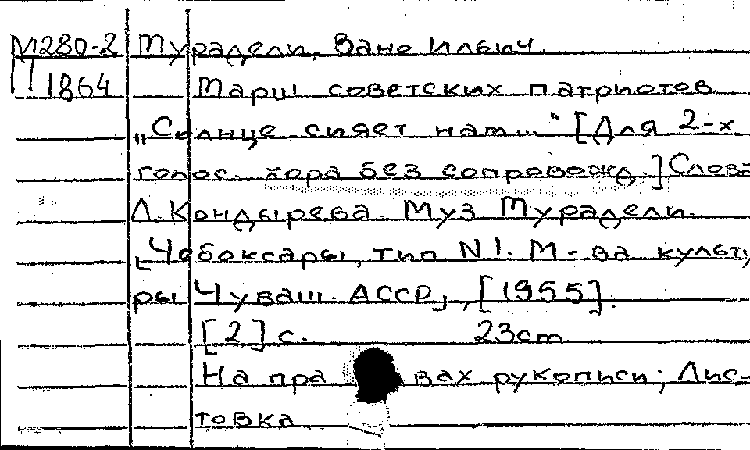 М280-2 Турадели, Вано Ильич
1864 Марш советских патриотов
„Солнце сияет нам..." [Для 2-х
голос. хора без сопровожд.] Слова
Л. Кондырева. Муз Турадели.
[Чебоксары, тип N1. М-ва культу
ры Чуваш. АССР], [1955].
[2] с. 23cm
На пра вах рукописи; Лис-
товка